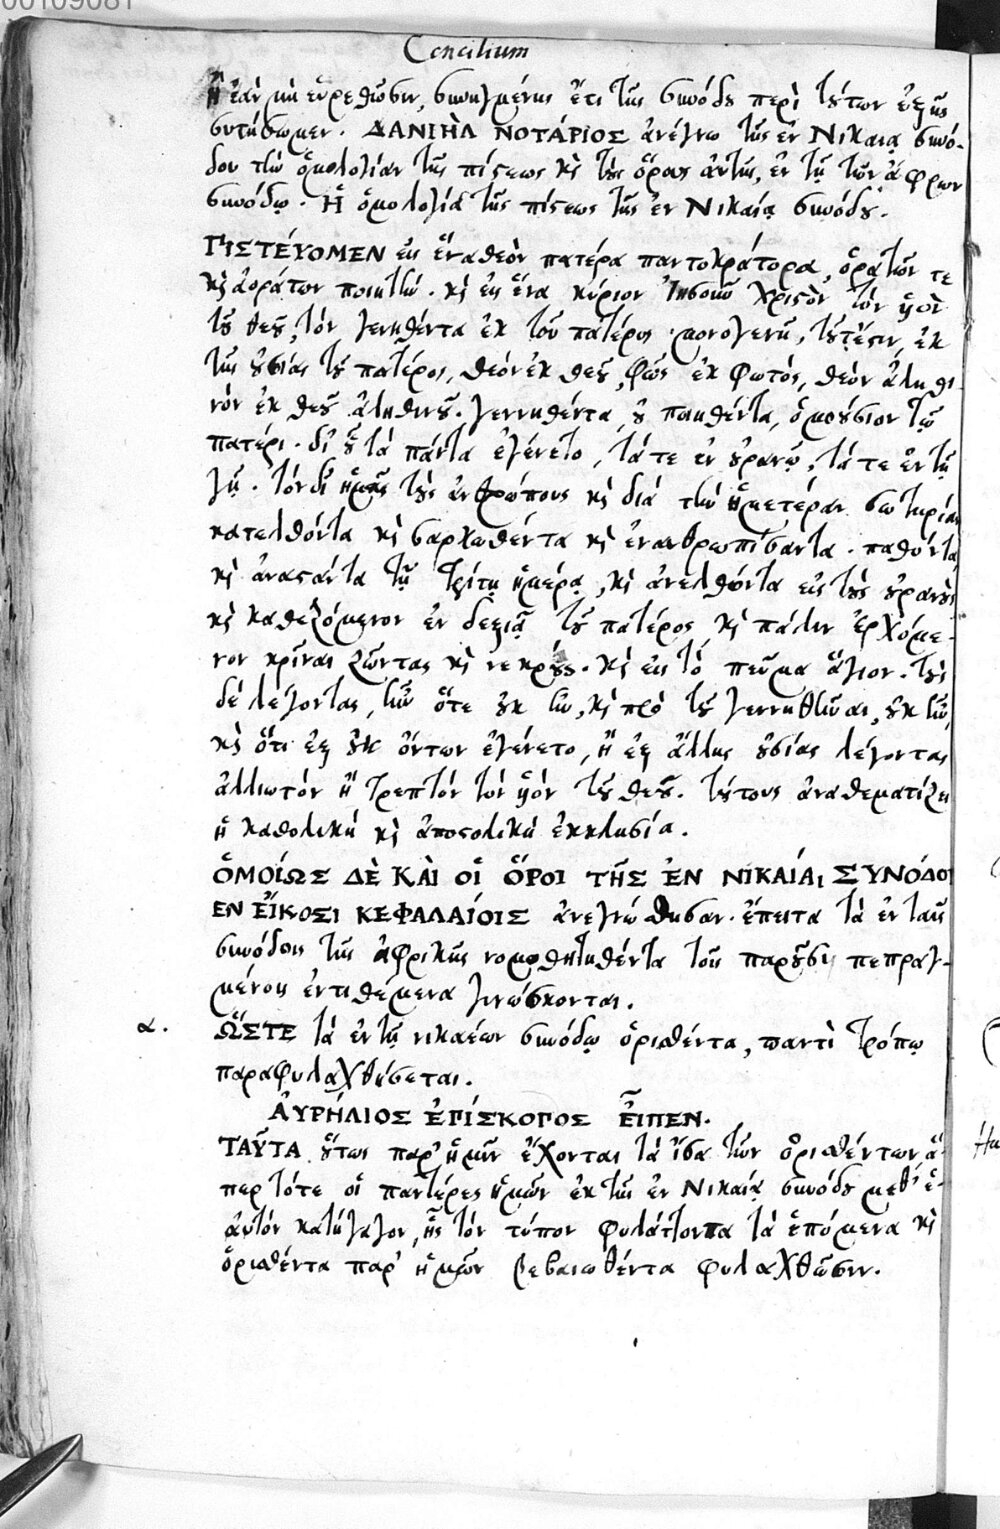 00109081
Concilium
ἢ ἐὰν μὴ εὑρεθῶσιν, συνηγμένης ἔτι τῆς συνόδου περὶ τούτων ἑξῆς
ζητήσωμεν. ΔΑΝΙῊΛ ΝΟΤΆΡΙΟΣ ἀνέγνω τῆς ἐν Νικαίᾳ συνό-
δου τὴν ὁμολογίαν τῆς πίστεως καὶ τοὺς ὅρους αὐτῆς, ἐν τῇ τῶν ἄφρων
συνόδῳ. Ἡ ὁμολογία τῆς πίστεως τῆς ἐν Νικαίᾳ συνόδου.
ΠΙΣΤΕΎΟΜΕΝ εἰς ἕνα θεὸν πατέρα παντοκράτορα, ὁρατῶν τε
καὶ ἀοράτων ποιητήν. καὶ εἰς ἕνα κύριον Ἰησοῦν Χριστὸν τὸν υἱὸν
τοῦ θεοῦ, τὸν γεννηθέντα ἐκ τοῦ πατέρος μονογενῆ, τουτέστιν, ἐκ
τῆς οὐσίας τοῦ πατέρος, θεὸν ἐκ θεοῦ, φῶς ἐκ φωτός, θεὸν ἀληθι-
νὸν ἐκ θεοῦ ἀληθινοῦ. γεννηθέντα, οὐ ποιηθέντα, ὁμοούσιον τῷ
πατέρι. δι' οὗ τὰ πάντα ἐγένετο, τά τε ἐν οὐρανῷ, τά τε ἐν τῇ
γῇ. τὸν δι' ἡμᾶς τοὺς ἀνθρώπους καὶ διὰ τὴν ἡμετέραν σωτηρίαν
κατελθόντα καὶ σαρκωθέντα καὶ ἐνανθρωπίσαντα. παθόντα,
καὶ ἀναστάντα τῇ τρίτῃ ἡμέρᾳ, καὶ ἀνελθόντα εἰς τοὺς οὐρανοὺς
καὶ καθεζόμενον ἐν δεξιᾷ τοῦ πατέρος καὶ πάλιν ἐρχόμε-
νον κρῖναι ζῶντας καὶ νεκρούς. καὶ εἰς τὸ πνεῦμα ἅγιον. τοὺς
δὲ λέγοντας, ἦν ὅτε οὐκ ἦν, καὶ πρὸ τοῦ γεννηθῆναι, οὐκ ἦν,
καὶ ὅτι ἐξ οὐκ ὄντων ἐγένετο, ἢ ἐξ ἄλλης οὐσίας λέγοντας
ἀλλιωτὸν ἢ τρεπτὸν τὸν υἱὸν τοῦ θεοῦ. τούτους ἀναθεματίζει
ἡ καθολικὴ καὶ ἀποστολικὴ ἐκκλησία.
ὉΜΟΊΩΣ ΔῈ ΚΑῚ ΟἹ ὍΡΟΙ ΤῆΣ ἘΝ ΝΙΚΑΊΑι ΣΥΝΌΔΟΥ
ΕΝ ΕἼΚΟΣΙ ΚΕΦΑΛΑΊΟΙΣ ἀνεγνώσθησαν. ἔπειτα τὰ ἐν ταῖς
συνόδοις τῆς ἀφρικῆς νομοθετηθέντα τοῖς παροῦσι πεπραγ-
μένοις ἐντιθέμενα γινώσκονται.
α. ὭΣΤΕ τὰ ἐν τῇ νικαέων συνόδῳ ὁρισθέντα, παντὶ τρόπῳ
παραφυλαχθήσεται.
ἈΥΡΉΛΙΟΣ ἘΠΊΣΚΟΠΟΣ ΕἾΠΕΝ.
ΤΑῦΤΑ οὕτως παρ' ἡμῖν ἔχονται τὰ ἴσα τῶν ὁρισθέντων ἅ-
περ τότε οἱ παντέρες ἡμῶν ἐκ τῆς ἐν Νικαίᾳ συνόδου μεθ' ἑ-
αυτῶν κατήγαγον, ἧς τὸν τύπον φυλάττοντα τὰ ἑπόμενα καὶ
ὁρισθέντα παρ' ἡμῶν βεβαιωθέντα φυλαχθῶσιν.